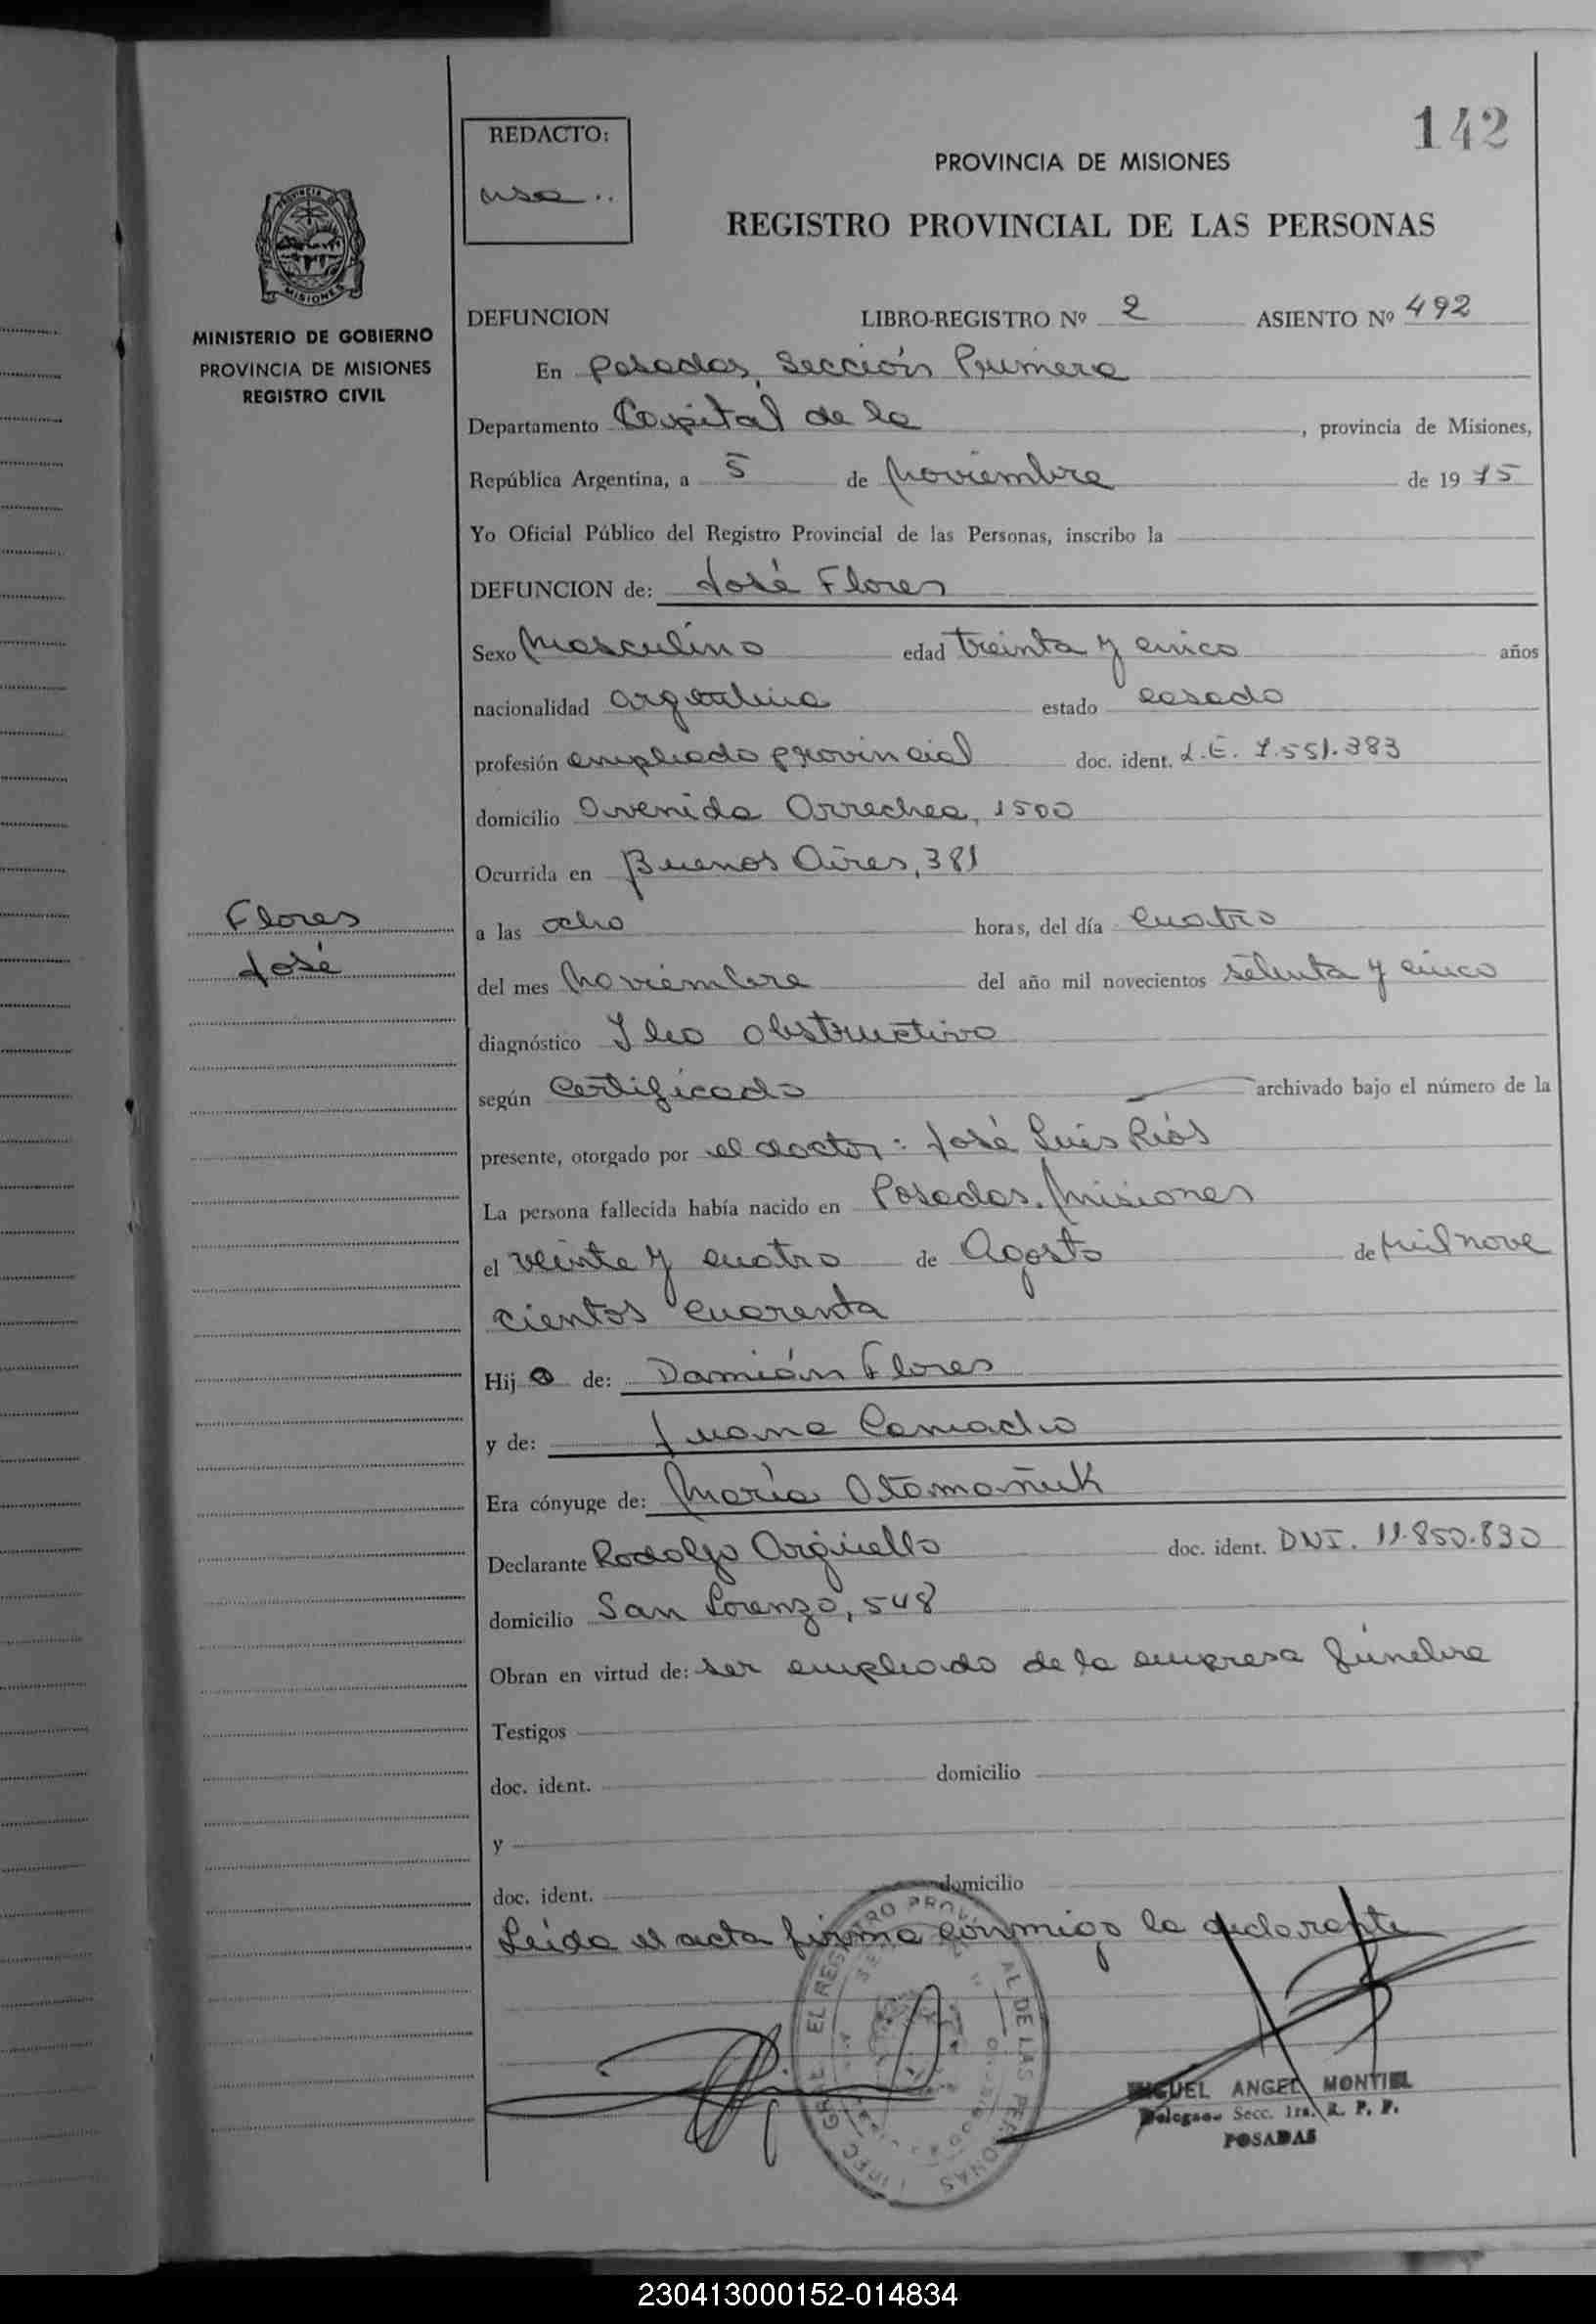 142
REDACTO:
PROVINCIA DE MISIONES
REGISTRO PROVINCIAL DE LAS PERSONAS
PROVINCIA DE
MISIONES
MINISTERIO DE GOBIERNO
PROVINCIA DE MISIONES
REGISTRO CIVIL
DEFUNCION LIBRO-REGISTRO Nº 2 ASIENTO Nº 492
En Posadas, Sección Primera
Departamento Capital de la , provincia de Misiones,
República Argentina, a 5 de noviembre de 19 75
Yo Oficial Público del Registro Provincial de las Personas, inscribo la
DEFUNCION de: José Flores
Sexo Masculino edad treinta y cinco años
nacionalidad argentina estado casado
profesión empleado provincial doc. ident. L.E. 7.551.383
domicilio Avenida Arrechea, 1500
Ocurrida en Buenos Aires, 381
Flores
José
a las ocho horas, del día cuatro
del mes noviembre del año mil novecientos setenta y cinco
diagnóstico Ileo obstructivo
según Certificado archivado bajo el número de la
presente, otorgado por el doctor: José Luis Ríos
La persona fallecida había nacido en Posadas, Misiones
el veinte y cuatro de Agosto de mil nove
cientos cuarenta
Hij o de: Damián Flores
y de: Juana Camacho
Era cónyuge de: María Otomañuk
Declarante Rodolfo Argüello doc. ident. DNI. 11.850.830
domicilio San Lorenzo, 548
Obran en virtud de: ser empleado de la empresa fúnebre
Testigos
doc. ident. domicilio
y
doc. ident. domicilio
Leída el acta firma conmigo la declarante
MIGUEL ANGEL MONTIEL
Delegado Secc. 1ra. R. P. P.
POSADAS
230413000152-014834